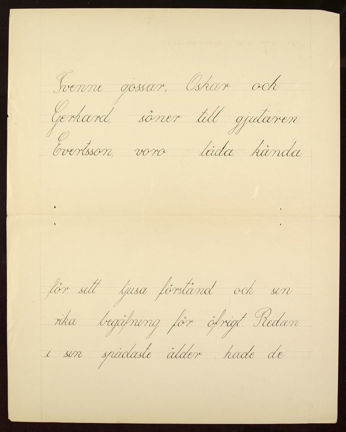 Tvenne gossar, Oskar och
Gerhard, söner till gjutaren
Evertsson, voro båda kända
för sitt ljusa förstånd och sin
rika begåfning för öfrigt. Redan
i sin spädaste ålder hade de